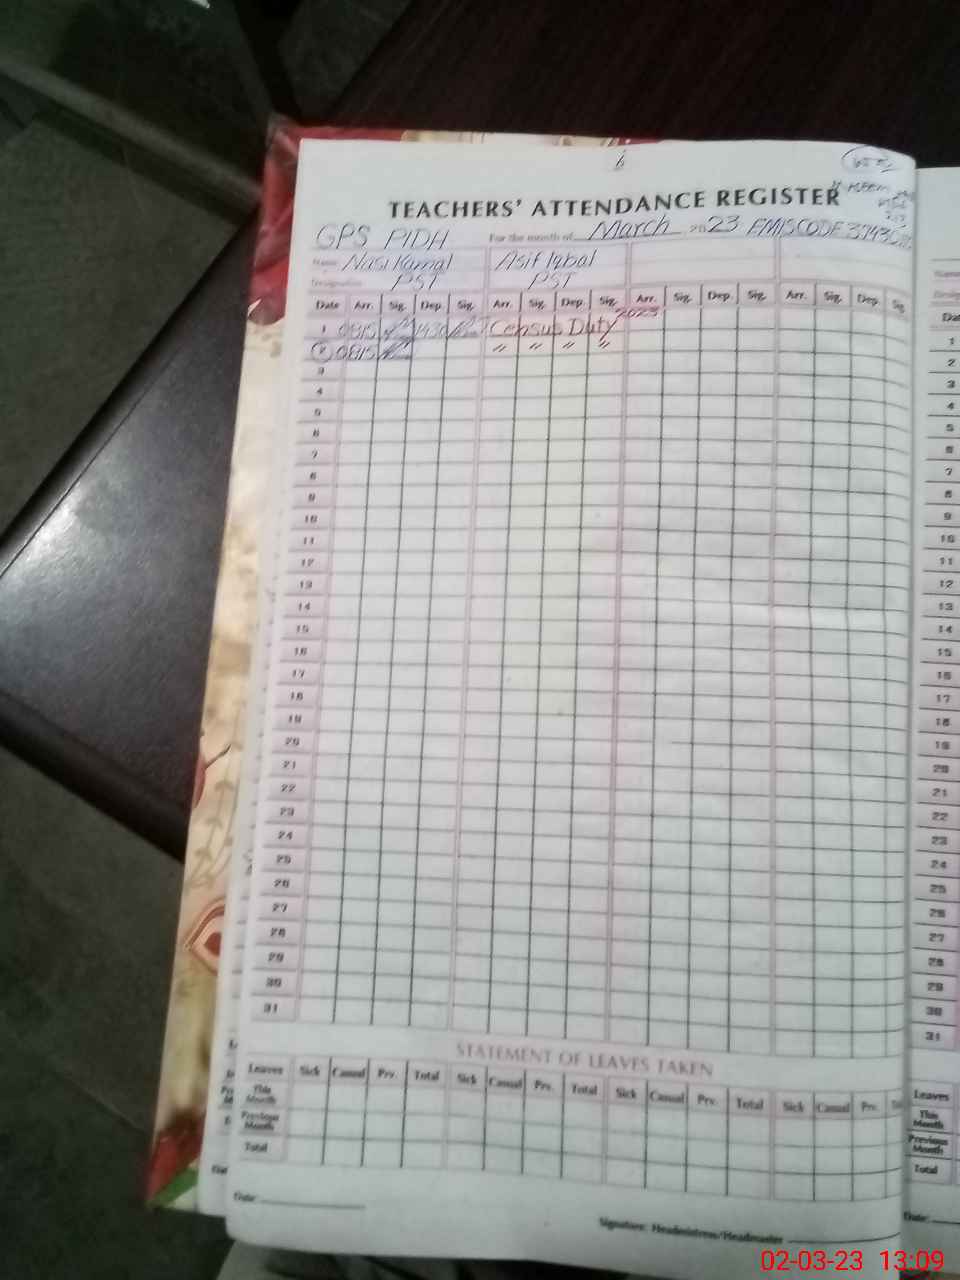 6
TEACHERS' ATTENDANCE REGISTER
GPS PIDH For the month of March 2023 EMISCODE
Name Nasi Kamal Asif Iqbal
Designation PST PST
Date Arr. Sig. Dep. Sig. Arr. Sig. Dep. Sig. Arr. Sig. Dep. Sig. Arr. Sig. Dep. Sig.
1 0815 1430 Census Duty 2023
2 0815 〃 〃 〃 〃
3
4
5
6
7
8
9
10
11
12
13
14
15
16
17
18
19
20
21
22
23
24
25
26
27
28
29
30
31
STATEMENT OF LEAVES TAKEN
Leaves Sick Casual Prv. Total Sick Casual Prv. Total Sick Casual Prv. Total Sick Casual Prv.
This Month
Previous Month
Total
Date:
Signature: Headmistress/Headmaster
1
2
3
4
5
6
7
8
9
10
11
12
13
14
15
16
17
18
19
20
21
22
23
24
25
26
27
28
29
30
31
Leaves
This Month
Previous Month
Total
Date:
02-03-23 13:09